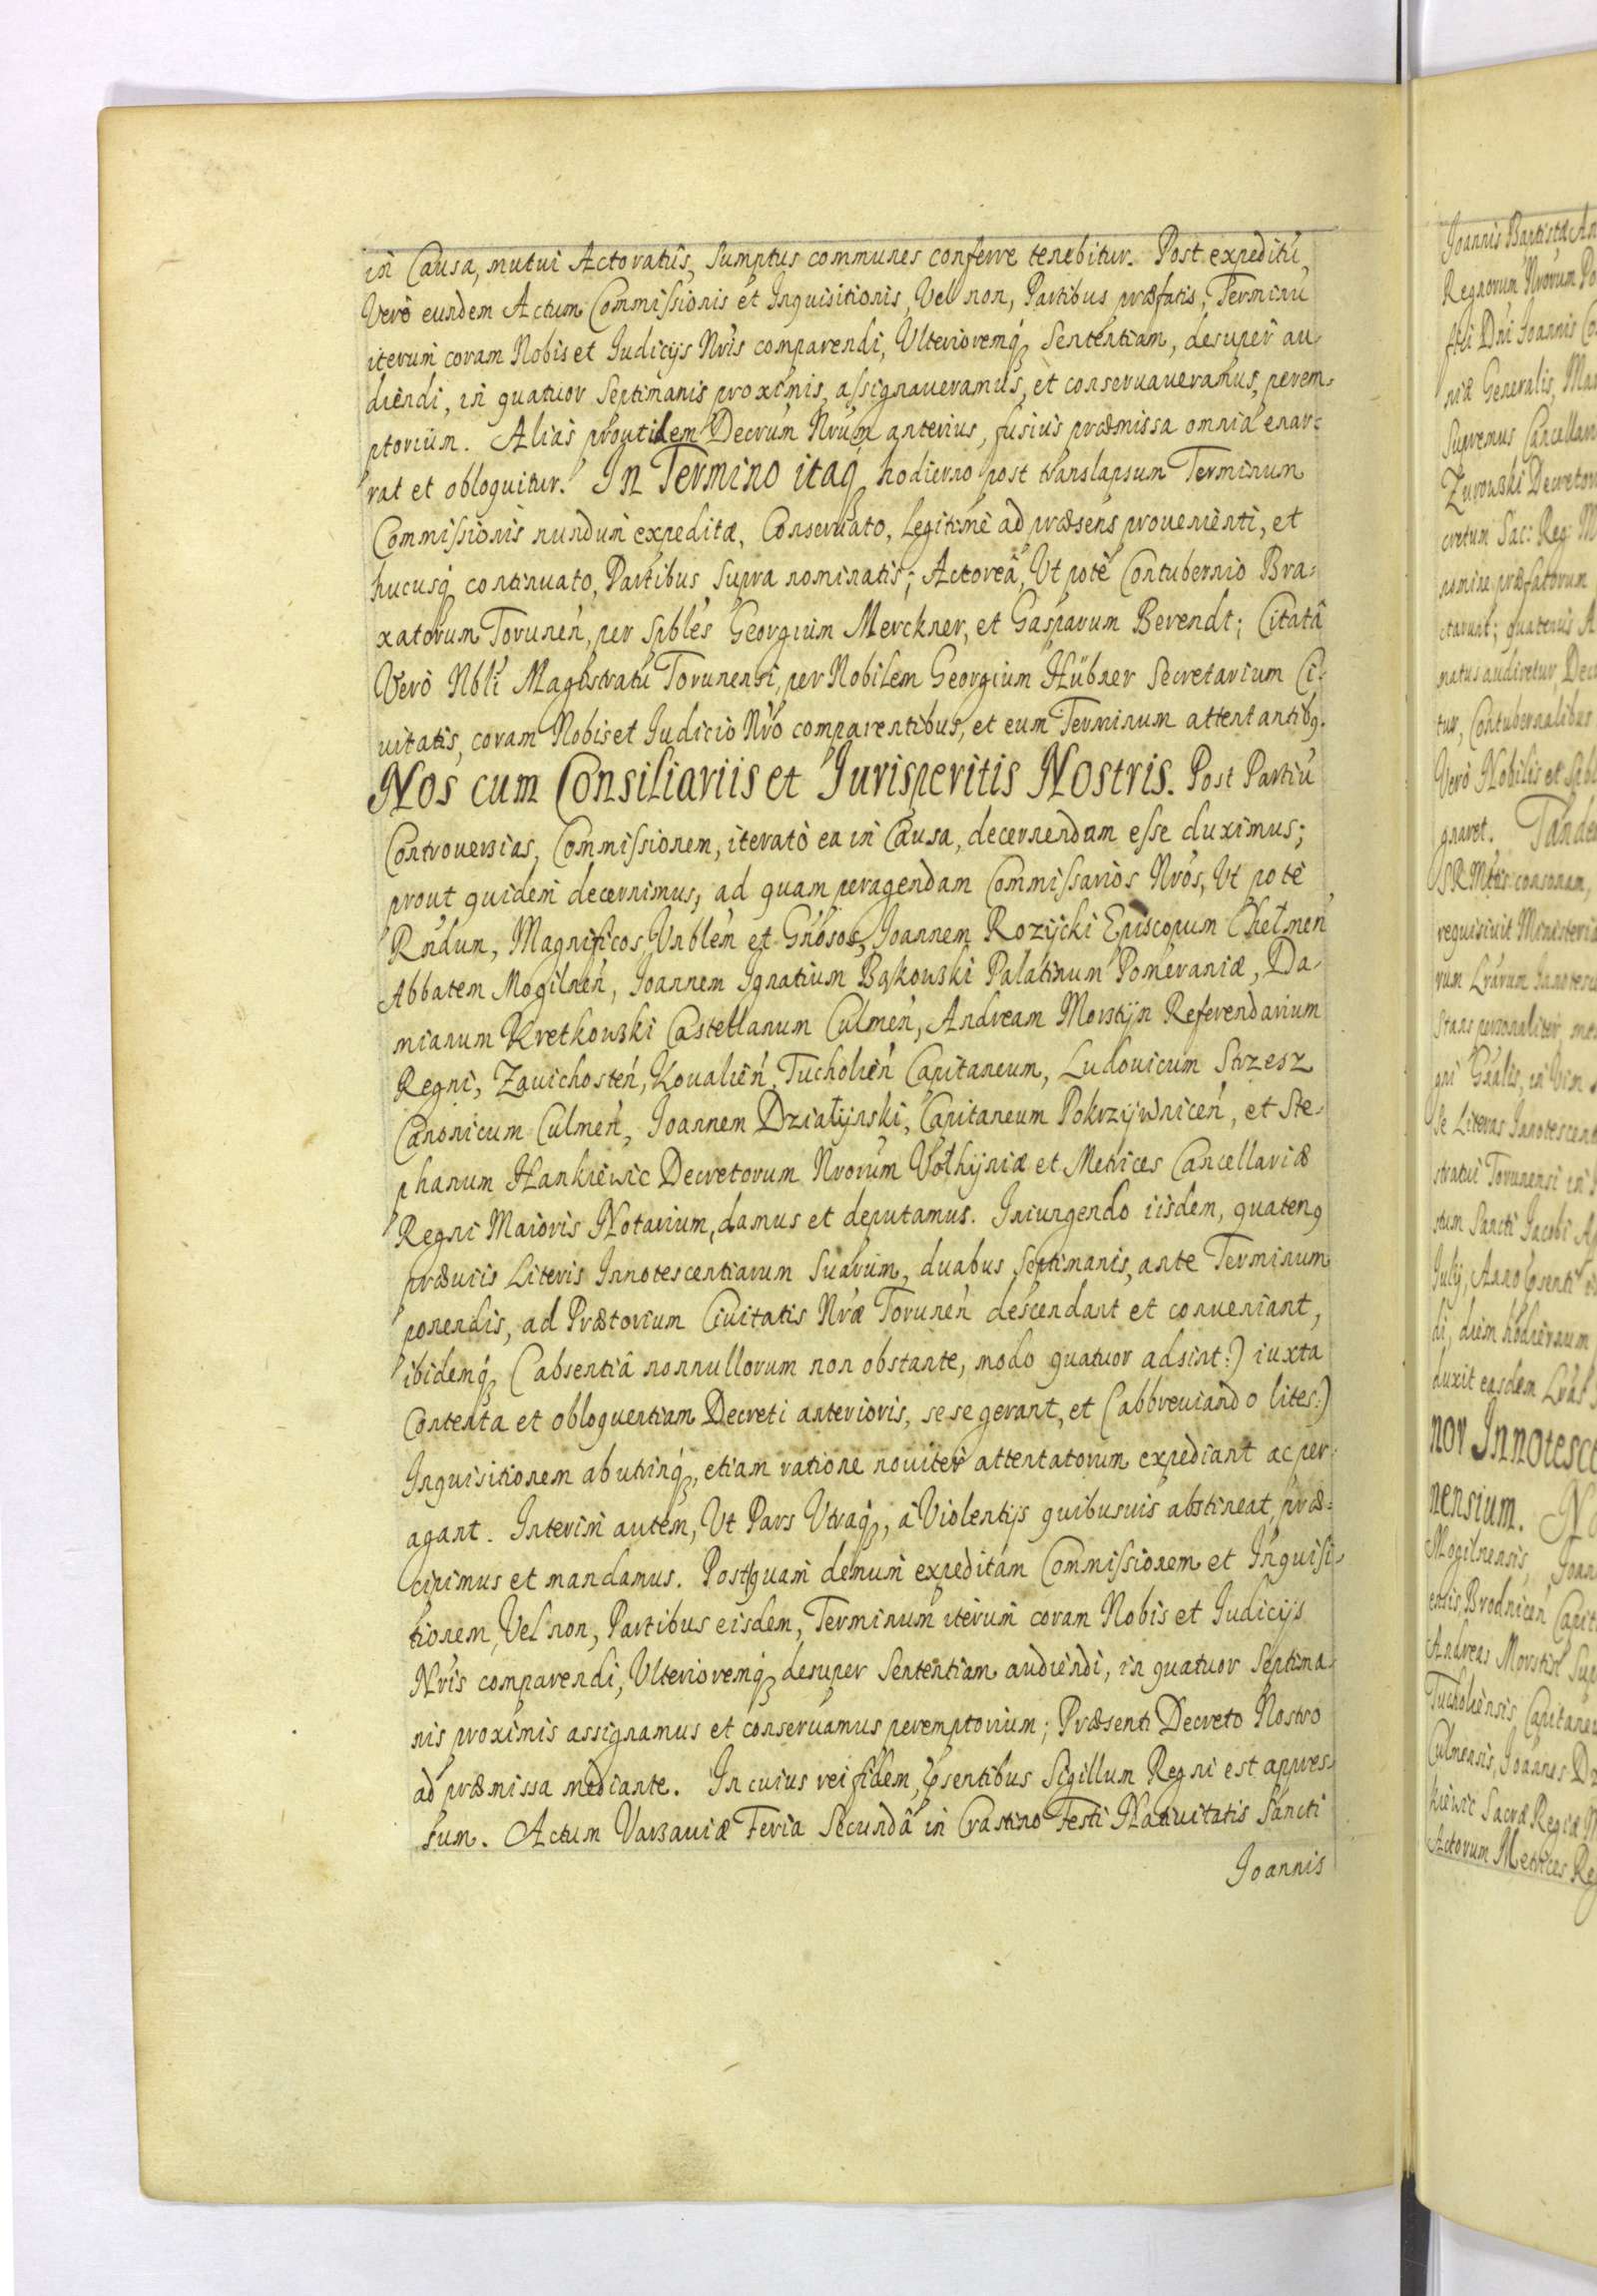 in Causa, mutui Actoratûs, Sumptus communes conferre tenebitur. Post expeditū,
Verò eundem Actum Commissionis et Inquisitionis, Vel non, Partibus præfatis, Terminū
iterum coram Nobis et Iudicijs Nris comparendi, Ulterioremq́ Sententiam, desuper au-
diendi, in quatuor Septimanis proximis, assignaveramus, et conservaveramus, perem-
ptorium. Alias prout idem Decrum Nrum anterius, fusius præmissa omnia enar:
rat et obloquitur. In Termino itaq́ hodierno post translapsum Terminum
Commissionis nundum expeditæ, Conservato, Legitimè ad præsens provenienti, et
hucusq́ continuato, Partibus supra nominatis; Actoreâ, Ut potè Contubernio Bra-
xatorum Toruneń, per Spbles Georgium Merckner, et Gasparum Berendt; Citatâ
Verò Nbli Magistratu Torunensi, per Nobilem Georgium Hübner Secretarium Ci-
uitatis, coram Nobis et Iudicio Nro comparentibus, et eum Terminum attentantibq.
Nos cum Consiliariis et Iurisperitis Nostris. Post Partiū
Controuersias, Commissionem, iteratò ea in Causa, decernendam esse duximus;
prout quidem decernimus, ad quam peragendam Commissarios Nros, Ut potè
Rndum, Magnificos, Vnblem et Gnosos, Joannem Rozycki Episcopum Chelmeń
Abbatem Mogilneń, Joannem Ignatium Bąkowski Palatinum Pomeraniæ, Da-
mianum Kretkowski Castellanum Culmeń, Andream Morstijn Referendarium
Regni, Zauichosteń, Koualień, Tucholień Capitaneum, Ludouicum Strzesz
Canonicum Culmeń, Joannem Działyński, Capitaneum Pokrzywniceń, et Ste-
phanum Hankiewic Decretorum Nrorum Volhyniæ et Metrices Cancellariæ
Regni Maioris Notarium, damus et deputamus. Iniungendo iisdem, quatenq
præuiis Literis Innotescentiarum Suarum, duabus Septimanis, ante Terminum
ponendis, ad Prætorium Ciuitatis Nræ Toruneń descendant et conueniant,
ibidemq́ (absentiâ nonnullorum non obstante, modo quatuor adsint:) iuxta
Contenta et obloquentiam Decreti anterioris, se se gerant, et (abbreuiando lites:)
Inquisitionem ab utrinq́, etiam ratione nouiter attentatorum expediant ac per-
agant. Interim autem, Ut Pars Utraq́, à Violentijs quibusuis abstineat, præ-
cipimus et mandamus. Postquam demum expeditam Commissionem et Inquisi-
tionem, Vel non, Partibus eisdem, Terminum iterum coram Nobis et Iudicijs
Nris comparendi, Ulterioremq́ desuper Sententiam audiendi, in quatuor Septima-
nis proximis assignamus et conseruamus peremptorium; Præsenti Decreto Nostro
ad præmissa mediante. In cuius rei fidem, Psentibus Sigillum Regni est appres-
sum. Actum Varsauiæ Feria Secundâ in Crastino Festi Natiuitatis Sancti
Joannis
Joannis Baptistæ
Regnorum Nrorum
Dni Joannis
niæ Generalis,
Supremus
Zurowski
cretum Sac: Reg:
nomine præfatorum
quatenus
natus audiretur
tur, Contubernalibus
Verò Nobilis et
gnaret. Tande
consonam,
requisiuit
rum
Stans personaliter
in Vim
Literas Innotescent
stratui Torunensi in
Sancti Jacobi
Julij, Anno
di, diem hodiernum
duxit easdem
nor Innotesce
nensium.
Mogilnensis,
ensis, Brodniceń
Andreas Morstin
Tucholiensis Capitane
Culmensis, Joannes
kiewic Sacræ Regiæ
Actorum Metrices